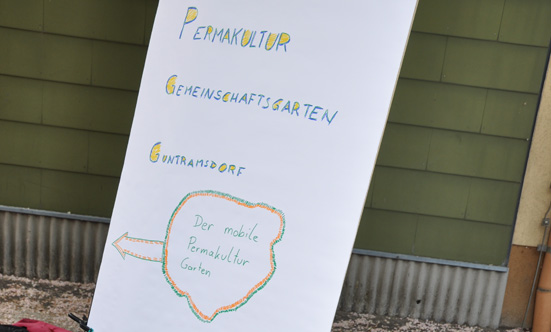 PERMAKULTUR
GEMEINSCHAFTSGARTEN
GUNTRAMSDORF
Der mobile
Permakultur
Garten